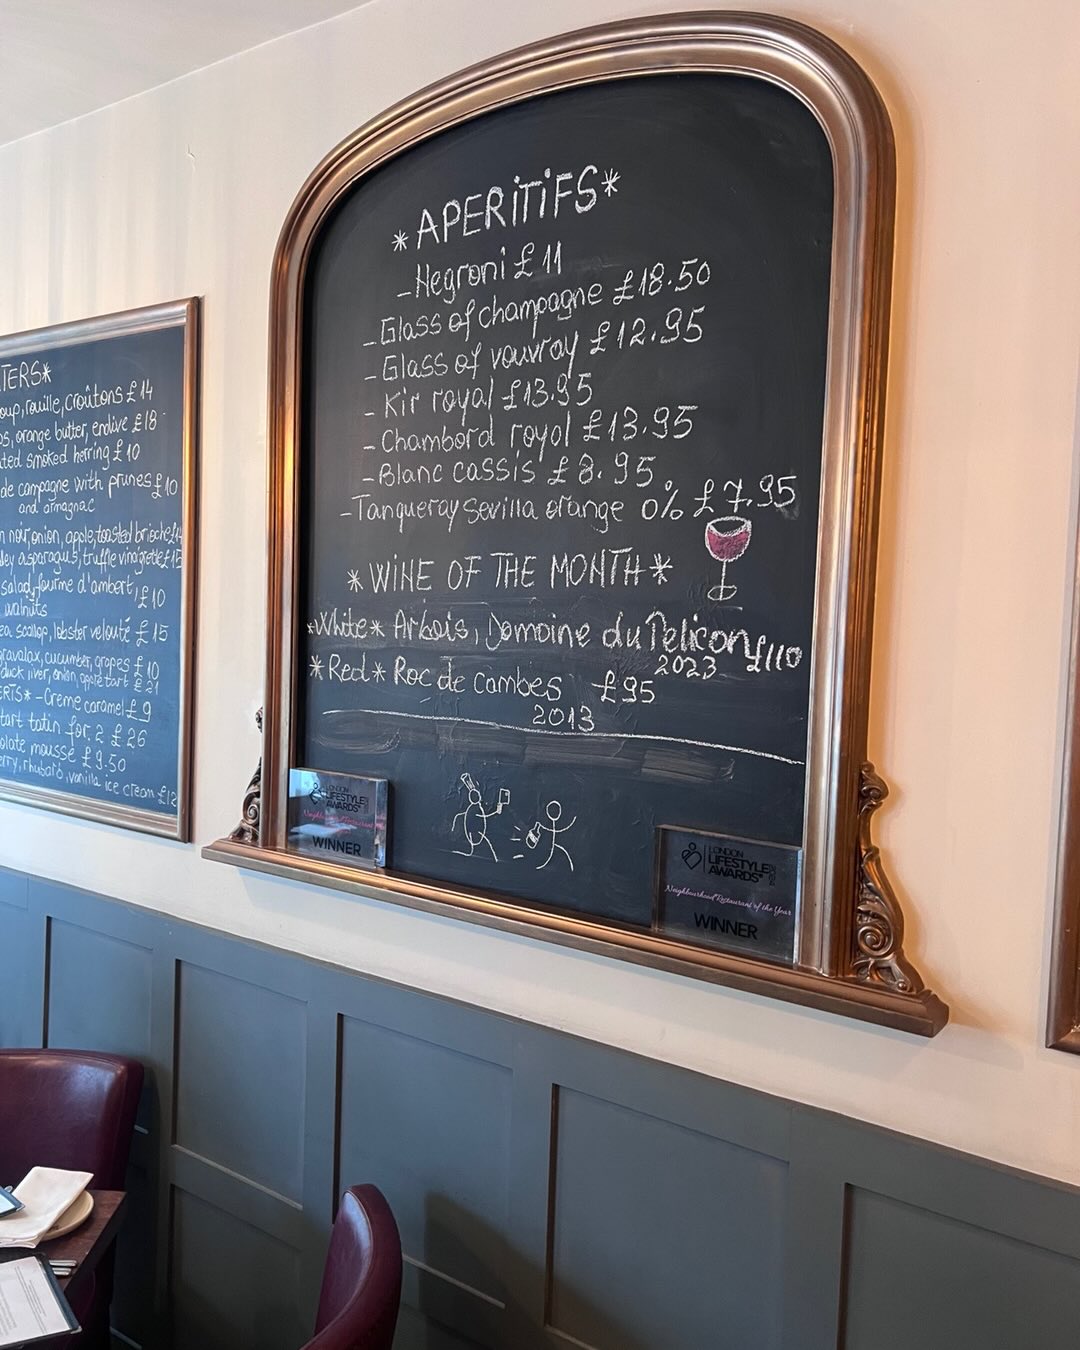 TERS*
oup, rouille, croûtons £14
orange butter, endive £18
smoked herring £10
de campagne with prunes £10
and armagnac
noir, onion, apple, toasted brioche
asparagus, truffle vinaigrette £15
salad, fourme d'ambert, £10
walnuts
scallop, lobster velouté £15
gravalax, cucumber, grapes £10
duck liver, onion, tart £21
ERTS* - Creme caramel £9
tart tatin for 2 £26
olate mousse £9.50
erry, rhubarb, vanilla ice cream £12
*APERITIFS*
- Negroni £11
- Glass of champagne £18.50
- Glass of vouvray £12.95
- Kir royal £13.95
- Chambord royal £13.95
- Blanc cassis £8.95
- Tanqueray Sevilla orange 0% £7.95
*WINE OF THE MONTH*
*White* Arbois, Domaine du Pelican £110
2023
*Red* Roc de Cambes £95
2013
LONDON
LIFESTYLE
AWARDS
Neighbourhood Restaurant
WINNER
LONDON
LIFESTYLE
AWARDS
Neighbourhood Restaurant of the Year
WINNER